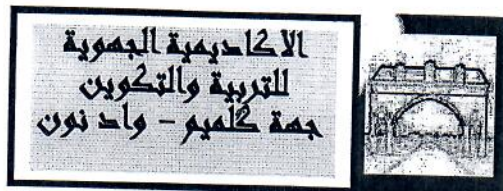 الاكاديمية الجهوية
للتربية والتكوين
جهة كلميم - واد نون